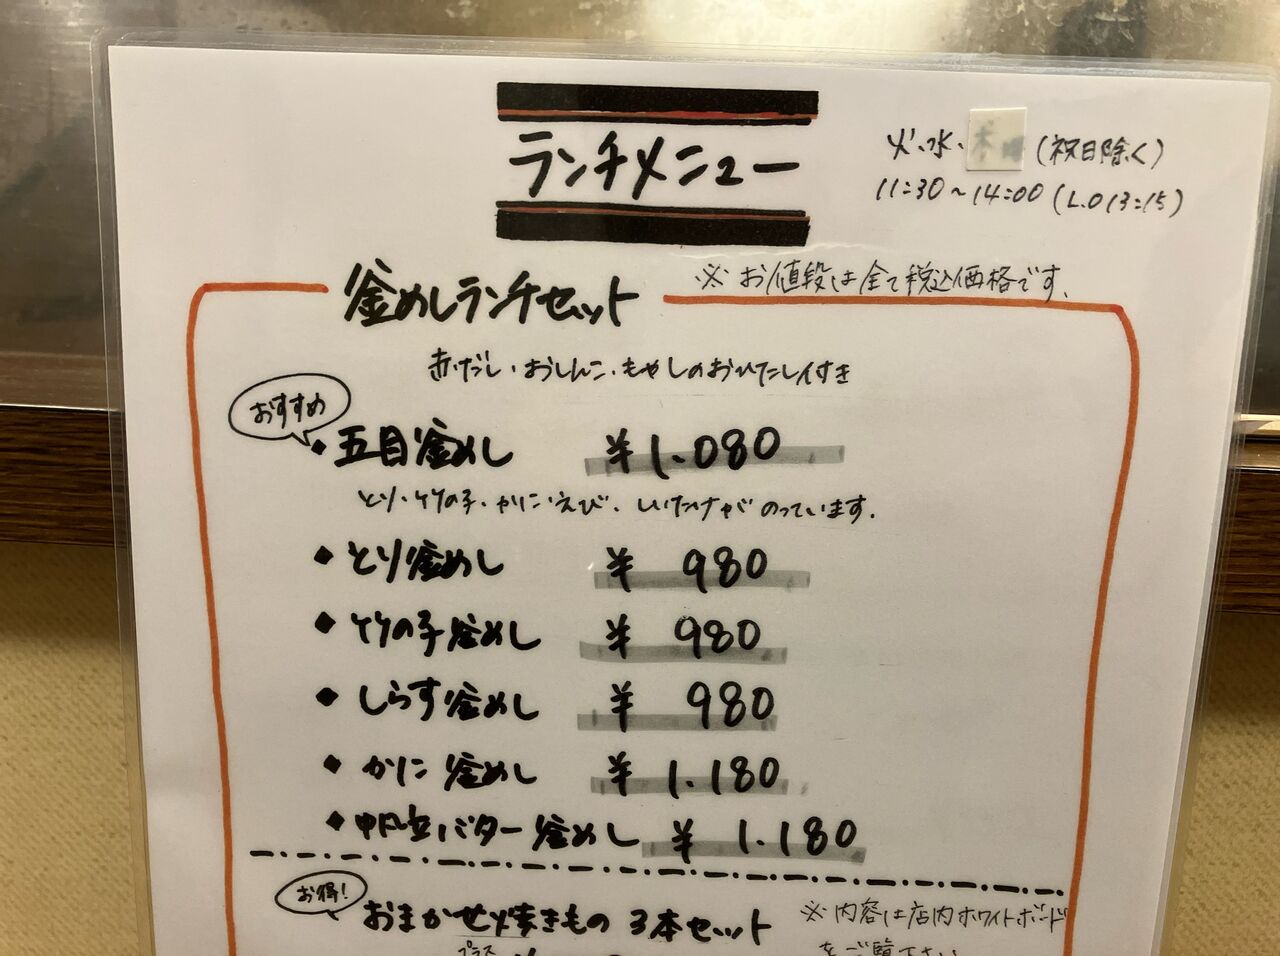 ランチメニュー
火・水・木 (祝日除く)
11:30～14:00 (L.O 13:15)
釜めしランチセット
※ お値段は全て税込価格です。
赤だし・おしんこ・もやしのおひたし付き
おすすめ
◆五目釜めし ¥1.080
とり・竹の子・かに・えび・しいたけがのっています。
◆とり釜めし ¥980
◆竹の子釜めし ¥980
◆しらす釜めし ¥980
◆かに釜めし ¥1.180
◆帆立バター釜めし ¥1.180
お得!
おまかせ焼きもの 3本セット
※内容は店内ホワイトボード
をご覧下さい
プラス